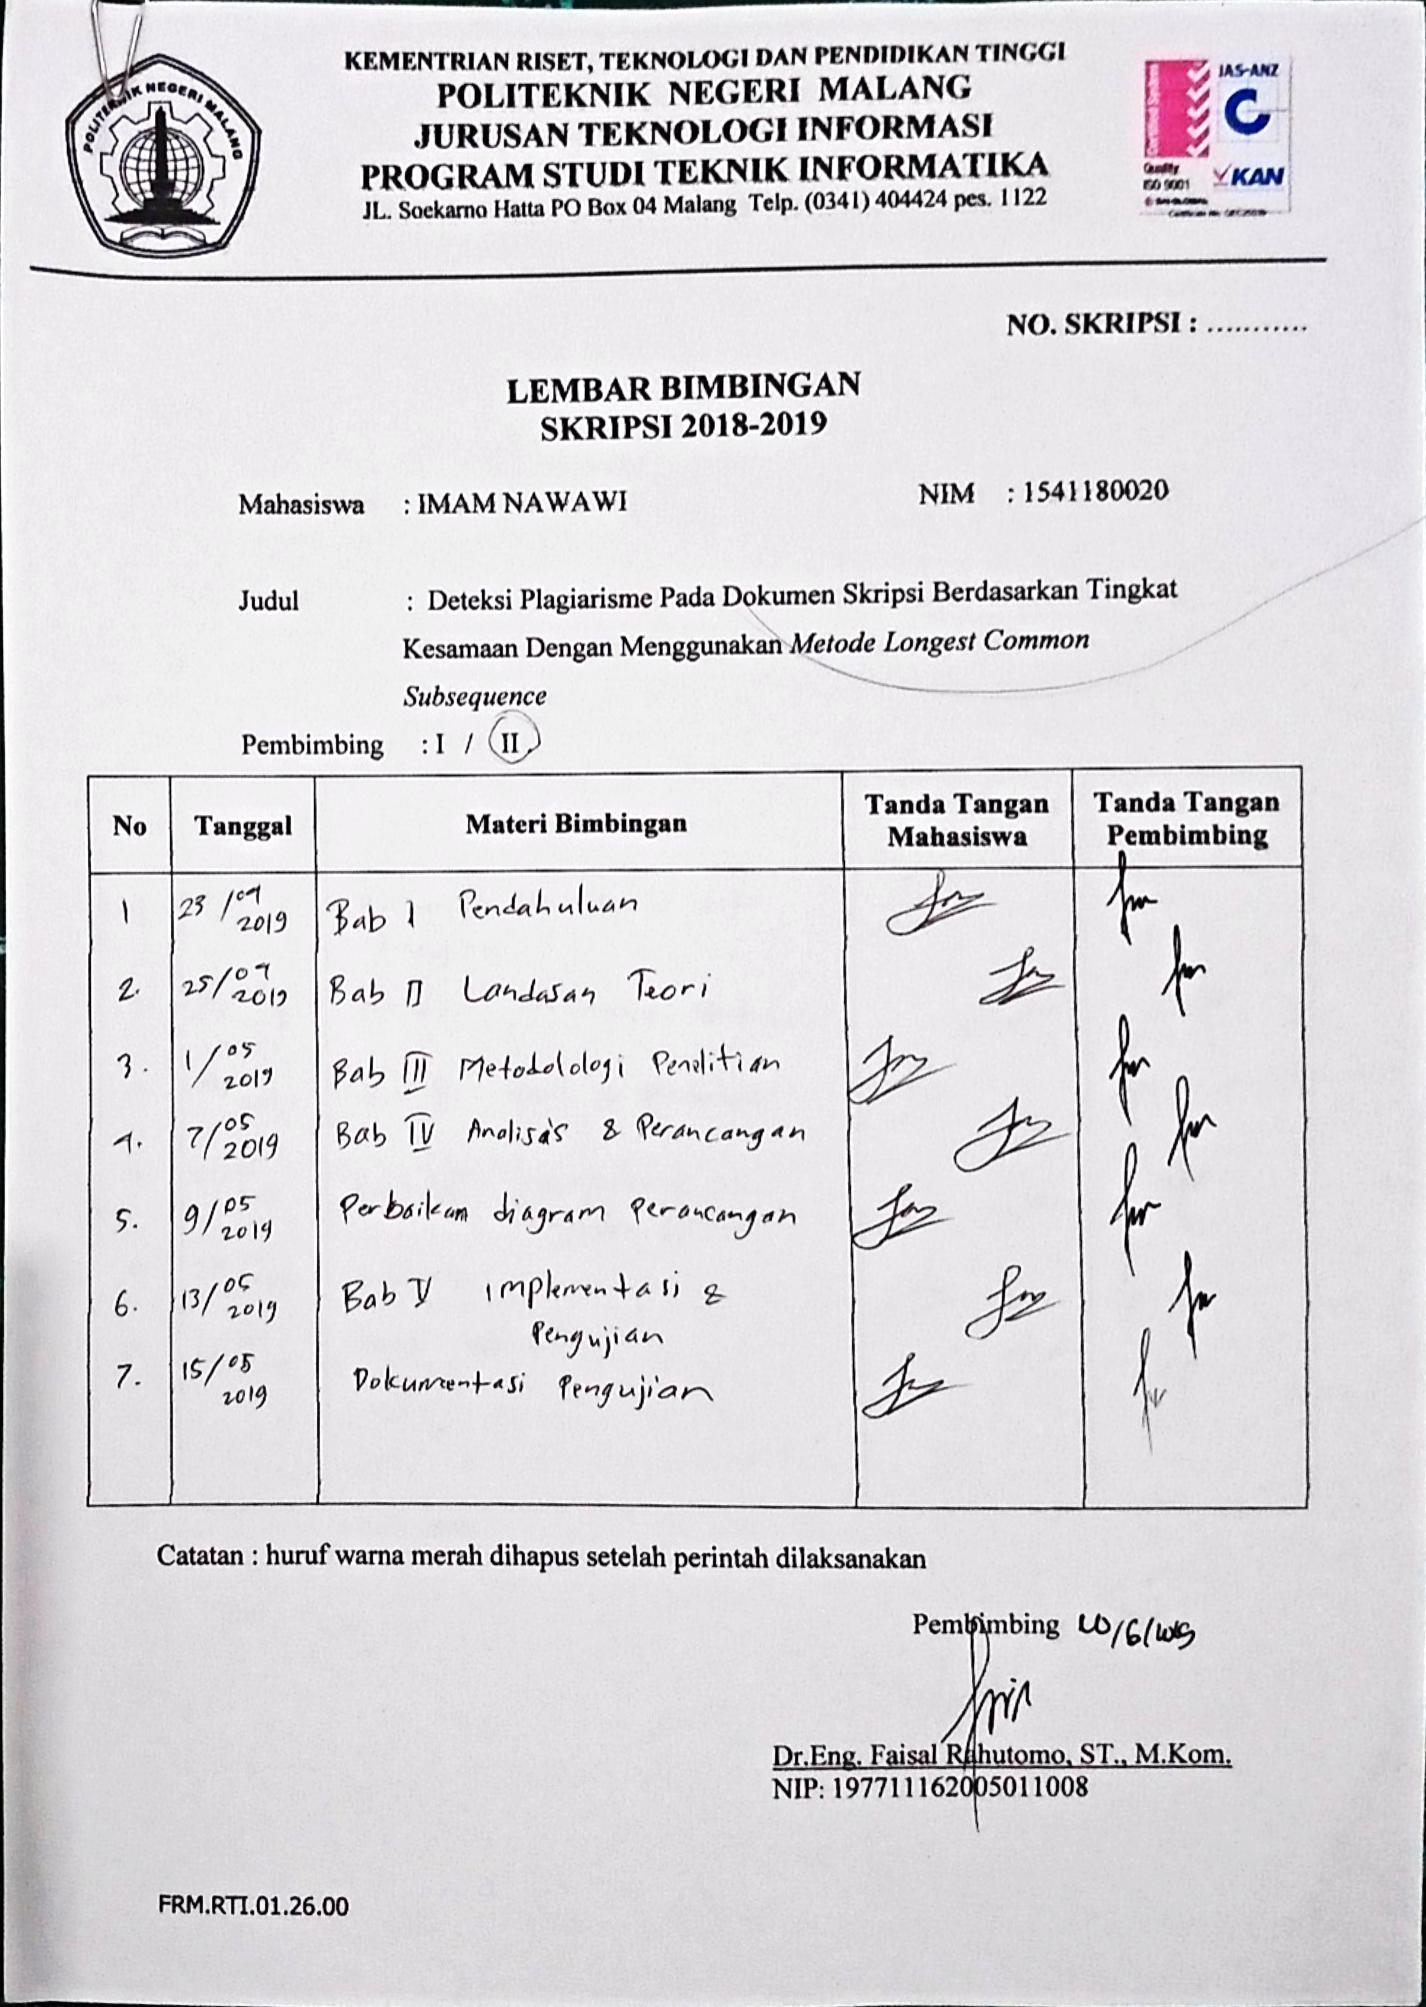 POLITEKNIK NEGERI MALANG
KEMENTRIAN RISET, TEKNOLOGI DAN PENDIDIKAN TINGGI
POLITEKNIK NEGERI MALANG
JURUSAN TEKNOLOGI INFORMASI
PROGRAM STUDI TEKNIK INFORMATIKA
JL. Soekarno Hatta PO Box 04 Malang Telp. (0341) 404424 pes. 1122
Certified System
JAS-ANZ
C
Quality
ISO 9001
KAN
NO. SKRIPSI : ...........
LEMBAR BIMBINGAN
SKRIPSI 2018-2019
Mahasiswa : IMAM NAWAWI NIM : 1541180020
Judul : Deteksi Plagiarisme Pada Dokumen Skripsi Berdasarkan Tingkat
Kesamaan Dengan Menggunakan Metode Longest Common
Subsequence
Pembimbing : I / II
No Tanggal Materi Bimbingan Tanda Tangan Mahasiswa Tanda Tangan Pembimbing
1 23/04 2019 Bab I Pendahuluan
2. 25/04 2019 Bab II Landasan Teori
3. 1/05 2019 Bab III Metodolologi Penelitian
4. 7/05 2019 Bab IV Analisis & Perancangan
5. 9/05 2019 Perbaikan diagram perancangan
6. 13/05 2019 Bab V Implementasi &
Pengujian
7. 15/05 2019 Dokumentasi Pengujian
Catatan : huruf warna merah dihapus setelah perintah dilaksanakan
Pembimbing
Dr.Eng. Faisal Rahutomo, ST., M.Kom.
NIP: 197711162005011008
FRM.RTI.01.26.00